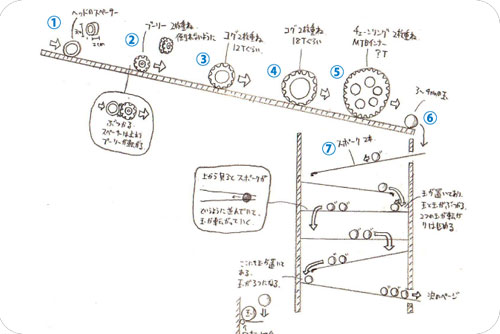 ①
ヘッドのスペーサー
3cm
2cm
②
プーリー 2枚重ね
③
コグ2枚重ね
12Tくらい
④
コグ2枚重ね
18Tくらい
⑤
チェーンリング2枚重ね
MTBインナー
?T
⑥
ぶつかる
スペーサーは止まり
プーリーが転がる
⑦
スポーク2本
上から見るとスポークが
というように並んでいて、
玉が転がっていく
玉が置いてあり
玉と玉がぶつかる。
2つの玉が転が
りはじめる
ここにも玉が置いて
ある。
玉が3つになる。
次のページ